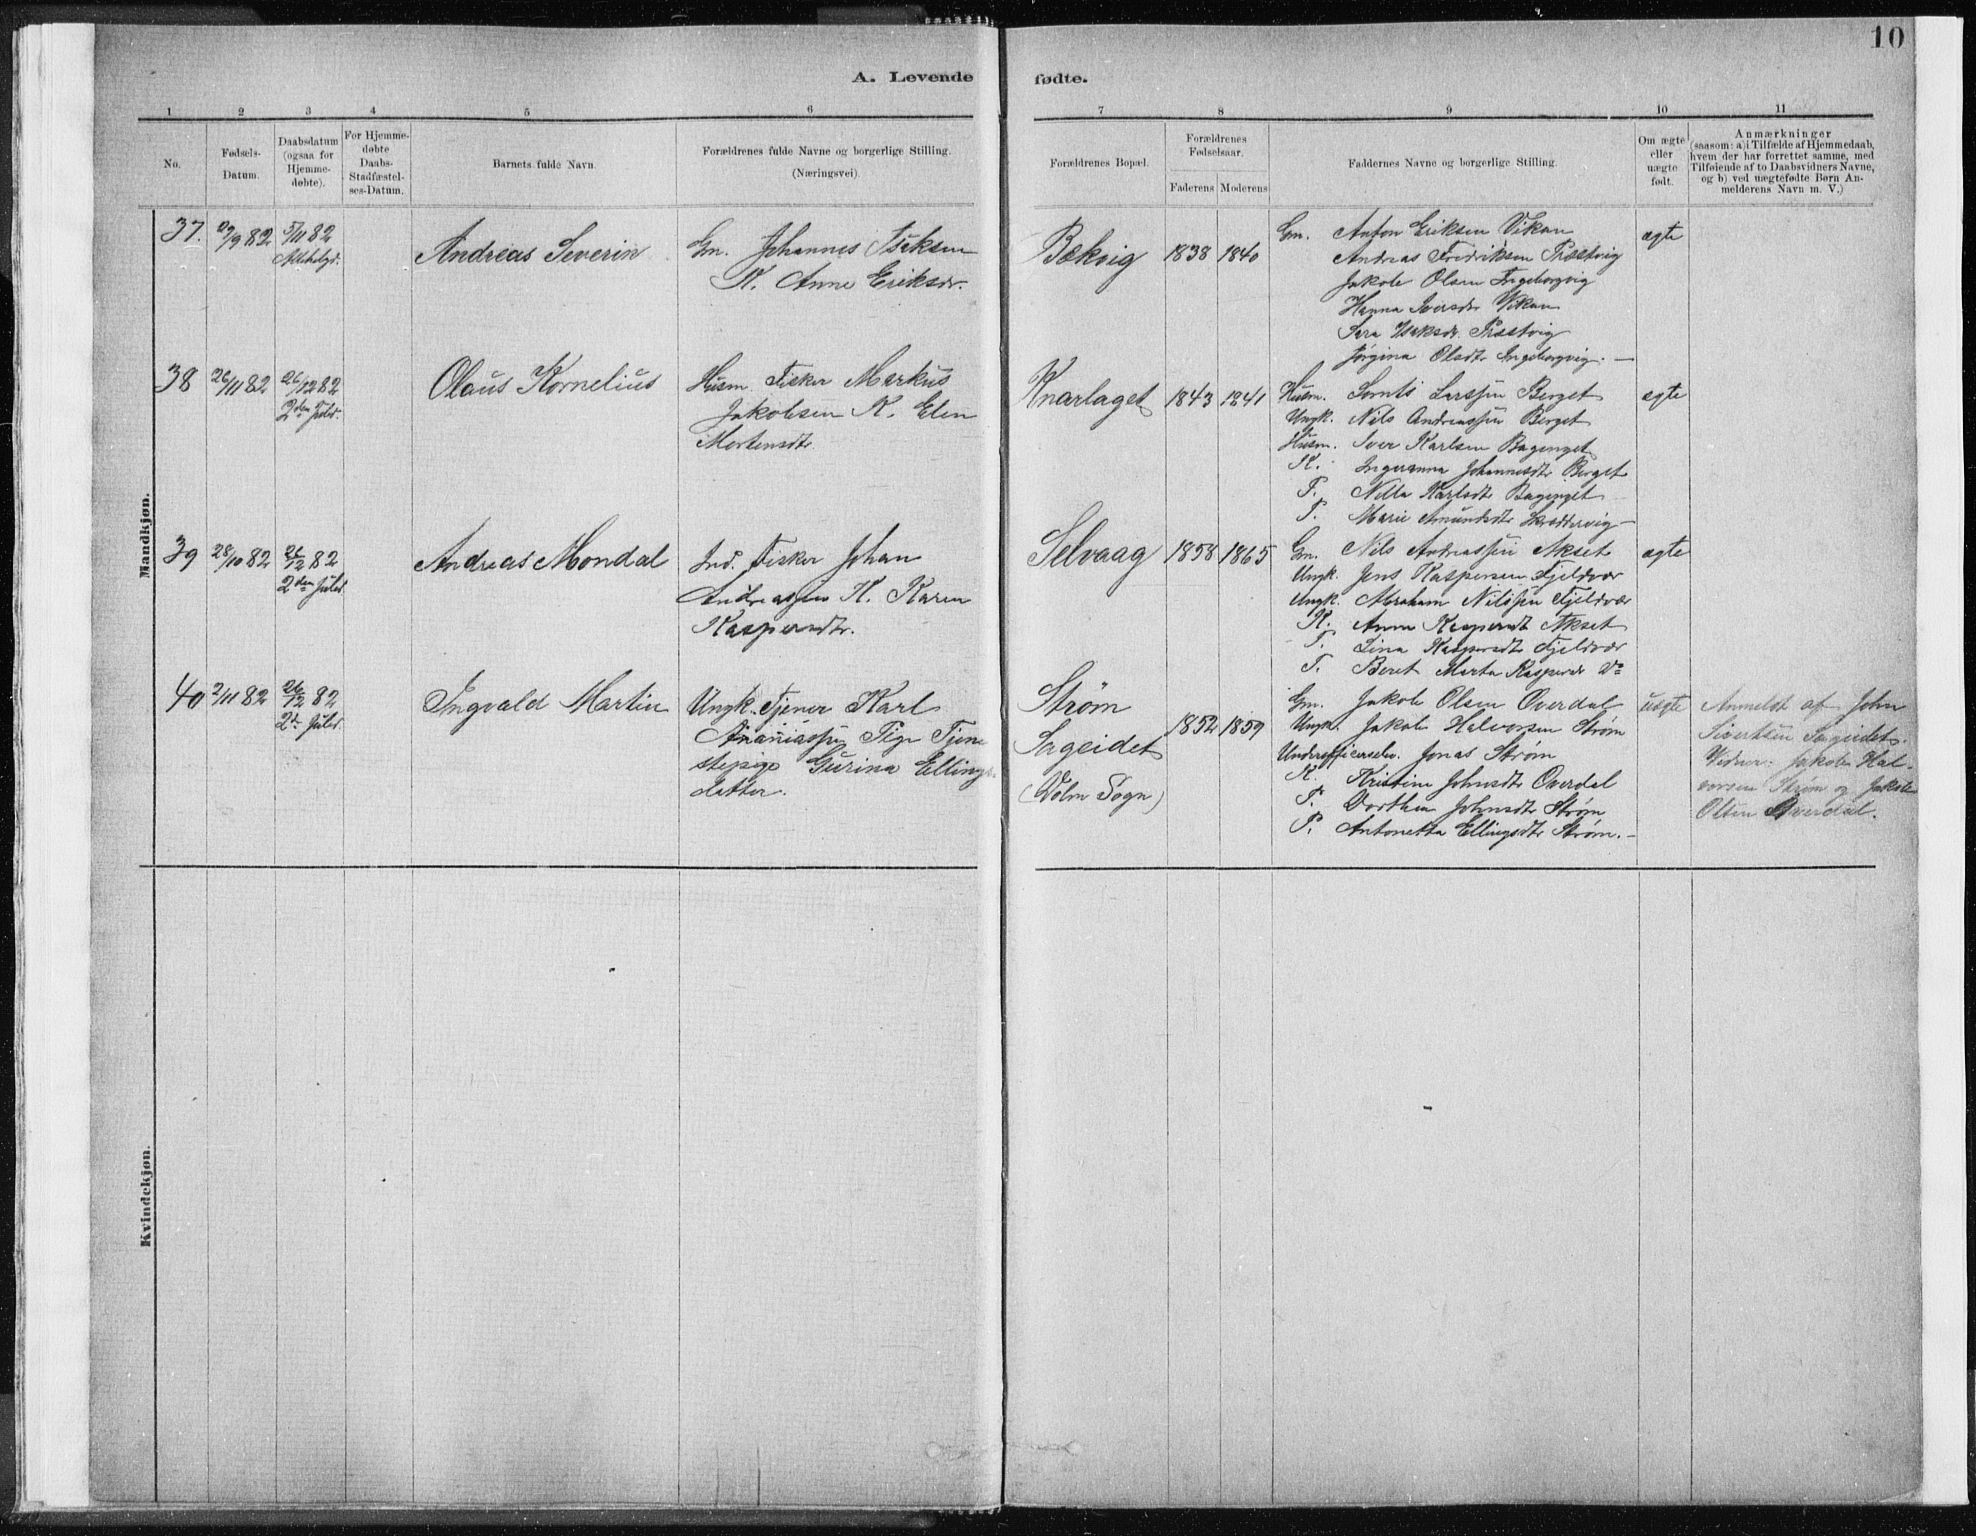 10
A. Levende fødte.
1 2 3 4 5 6 7 8 9 10 11
No.
Fødsels-
Datum.
Daabsdatum
(ogsaa for
Hjemme-
døbte).
For Hjemme-
døbte
Daabs-
Stadfæstel-
ses-Datum.
Barnets fulde Navn.
Forældrenes fulde Navne og borgerlige Stilling.
(Næringsvei).
Forældrenes Bopæl.
Forældrenes
Fødselsaar.
Faderens Moderens
Faddernes Navne og borgerlige Stilling.
Om ægte
eller
uægte
født.
Anmærkninger
(saasom: a) i Tilfælde af Hjemmedaab,
hvem der har forrettet samme, med
Tilføiende af to Daabsvidners Navne,
og b) ved uægtefødte Børn An-
melderens Navn m. V.)
Mandkjøn.
37.
/9 82
5/11 82
Allehelgd.
Andreas Severin
Gm. Johannes Isaksen
K. Anne Eriksdr.
Bækvig
1838 1840
Gm. Anton Eriksen Vikan
Andreas Fredriksen Præstvig
Jakob Olsen Ingeborgvig
Hanna Iversdr Vikan
Sara Isaksdr Præstvig
Jørgina Olsdtr Ingeborgvig. —
ægte
38
26/11 82
26/12 82
2den Juled.
Olaus Kornelius
Husm. Fisker Markus
Jakobsen K. Elen
Mortensdtr.
Knarlaget
1843 1841
Husm. Larssen Berget
Ungk. Nils Andreassen Berget
Husm. Iver Karlsen Bagenget
K. Ingeranna Johannesdtr Berget
P. Nella Karlsdtr Bagenget
P. Marie Amundsdtr —
ægte
39
28/10 82
26/12 82
2den Juled
Andreas Mondal
Ind. Fisker Johan
Andreassen K. Karen
Kaspersdtr.
Selvaag
1858 1865
Gm. Nils Andreassen Akset
Ungk. Jens Kaspersen Fjeldvær
Ungk. Abraham Nilssen Fjeldvær
K. Anna Kaspersdt Akset
P. Lina Kaspersdtr Fjeldvær
P. Beret Marta Kaspersdr Do
ægte
40
2/11 82
26/12 82
2d. Juled.
Ingvald Martin
Ungk. Tjener Karl
Ananiassen Pige Tjene
stepige Gurina Ellings-
datter.
Strøm
Sageidet
(Holm Sogn)
1852 1859
Gm. Jakob Olsen Overdal
Ungk. Jakob Halvorsen Strøm
Jonas Strøm
K. Kristine Johnsdtr Overdal
P. Dorthea Johnsdtr Strøm
P. Antonetta Ellingsdtr Strøm. —
uægte
Anmeldt af John
Sivertsen Sageidet.
Vidner: Jakob Hal-
vorsen Strøm og Jakob
Olsen Overdal.
Kvindekjøn.